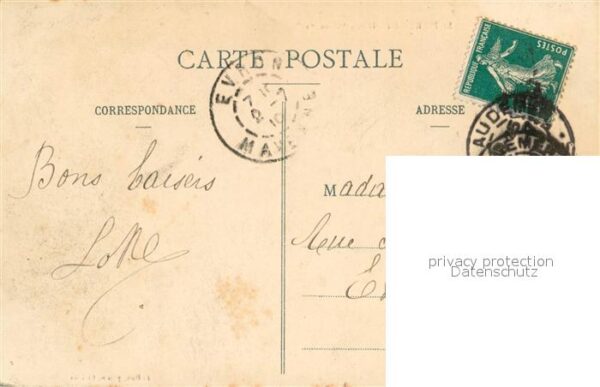 CARTE POSTALE
CORRESPONDANCE
ADRESSE
REPUBLIQUE FRANÇAISE
POSTES
EVRON
MAYENNE
Bons baisers
Mada
Rue
privacy protection
Datenschutz